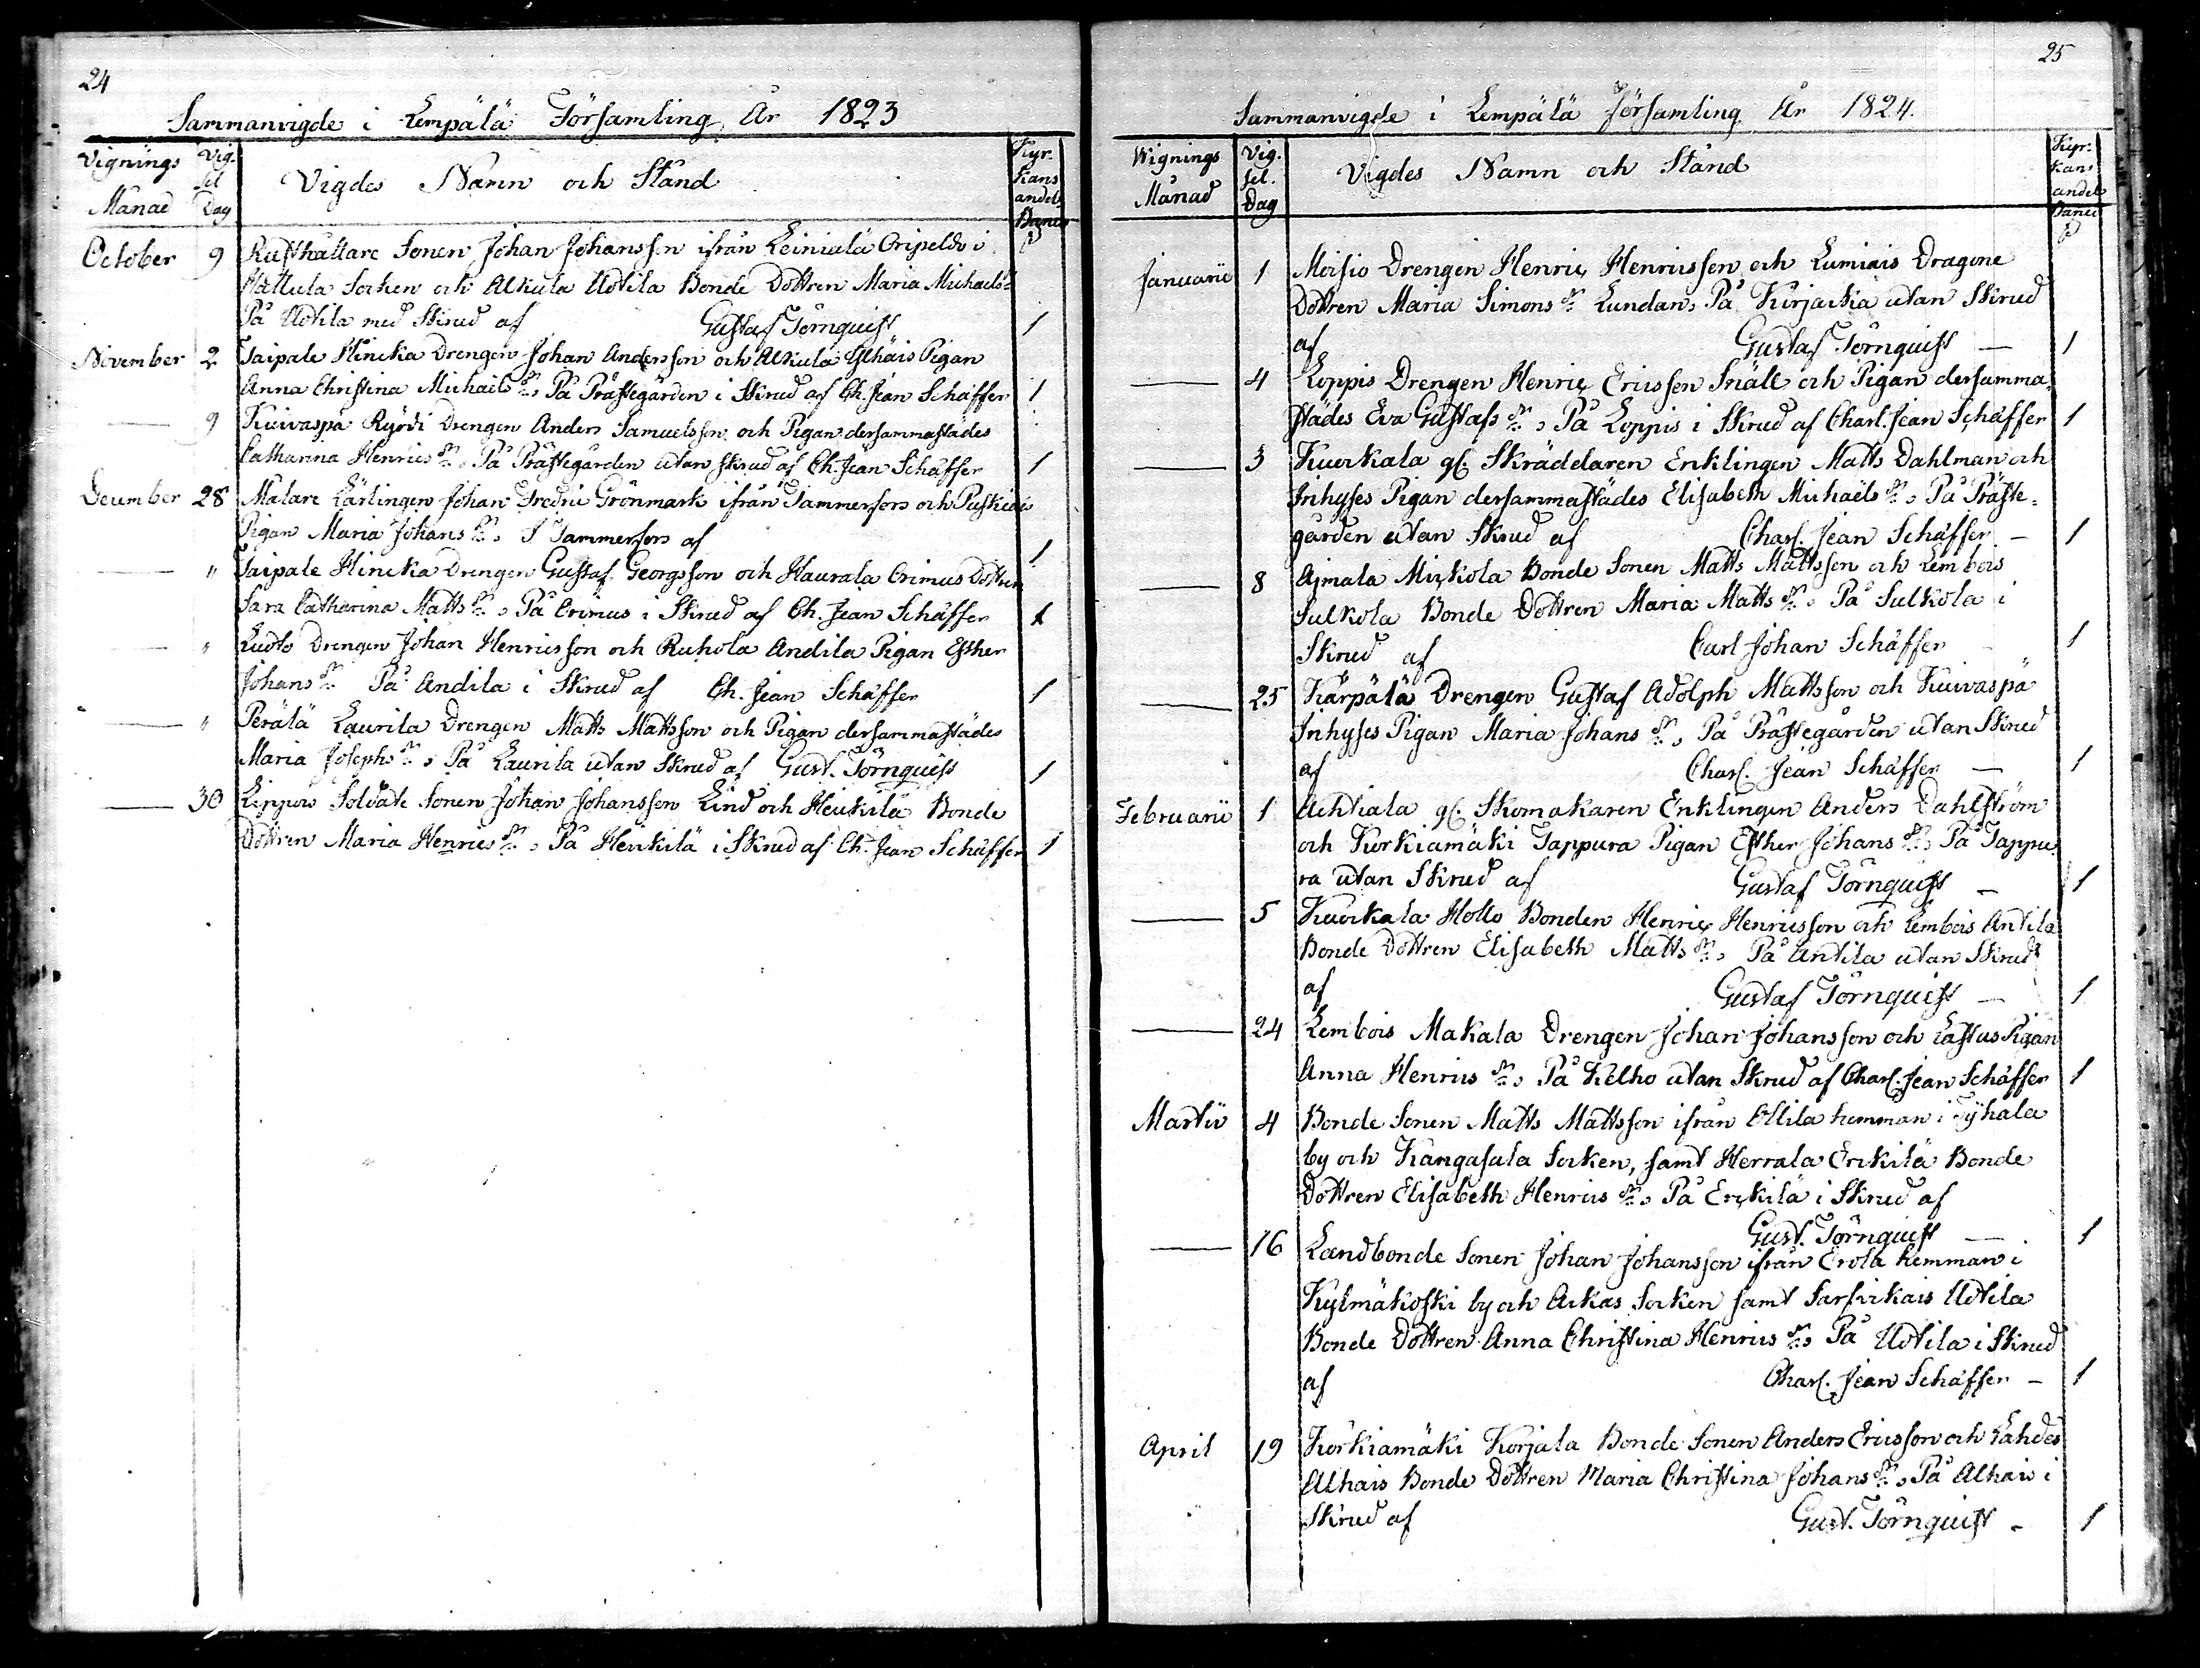 24
Sammanvigde i Lempälä Församling År 1823
Vignings Månad
Vig. sel Dag
Vigdes Namn och Stånd
Kyr. kans andel Banco
October 9 Rusthållare Sonen Johan Johansson ifrån Leiniälä Oripeldo i
Hattula Socken och Alkula Uotila Bonde Dottren Maria Michaels dr
På Uotila med Skrud af Gustaf Törnquist 1
November 2 Taipale Hincka Drengen Johan Andersson och Alkula Ylhäis Pigan
Anna Christina Michaels dr, På Prästegården i Skrud af Ch. Jean Schäffer 1
9 Kuivaspä Ryödi Drengen Anders Samuelsson och Pigan dersammastädes
Catharina Henrics dr, På Prästegården utan Skrud af Ch. Jean Schäffer 1
December 28 Målare Lärlingen Johan Fredric Grönmark ifrån Tammerfors och
Pigan Maria Johans dr, I Tammerfors af 1
" Taipale Hincka Drengen Gustaf Georgsson och Haurala Orimus Dottren
Sara Catharina Matts dr, På Orimus i Skrud af Ch. Jean Schäffer 1
" Luoto Drengen Johan Henricsson och Ruhola Andila Pigan Esther
Johans dr På Andila i Skrud af Ch. Jean Schäffer 1
" Perälä Laurila Drengen Matts Mattsson och Pigan dersammastädes
Maria Josephs dr, På Laurila utan Skrud af Gust. Törnquist 1
30 Lippois Soldate Sonen Johan Johansson Lind och Heickilä Bonde
Dottren Maria Henrics dr, På Heickilä i Skrud af Ch. Jean Schäffer 1
25
Sammanvigde i Lempälä Församling År 1824.
Wignings Månad
Vig. sel. Dag
Vigdes Namn och Stånd
Kyr. kans andel Banco
Januarii 1 Moisio Drengen Henric Henricsson och Lumiais Dragone
Dottren Maria Simons dr Lundan, På Kurjacka utan Skrud
af Gustaf Törnquist — 1
4 Loppis Drengen Henric Ericsson Snäll och Pigan dersamma,
städes Eva Gustafs dr, På Loppis i Skrud af Charl. Jean Schäffer 1
3 Kuockala gl. Skräddaren Enklingen Matts Dahlman och
Inhyses Pigan dersammastädes Elisabeth Michaels dr, På Präste-
gården utan Skrud af Charl. Jean Schäffer — 1
8 Ajmala Mickola Bonde Sonen Matts Mattsson och Lembois
Sulkola Bonde Dottren Maria Matts dr, På Sulkola i
Skrud af Carl Johan Schäffer 1
25 Kärpälä Drengen Gustaf Adolph Mattsson och Kuivaspä
Inhyses Pigan Maria Johans dr, På Prästegården utan Skrud
af Charl. Jean Schäffer — 1
Februarii 1 Achtiala gl. Skomakaren Enklingen Anders Dahlström
och Korkiamäki Tappura Pigan Esther Johans dr, På Tappu
ra utan Skrud af Gustaf Törnquist — 1
5 Kuockala Hollo Bonden Henric Henricsson och Lembois Antila
Bonde Dottren Elisabeth Matts dr, På Antila utan Skrud
af Gustaf Törnquist — 1
24 Lembois Makala Drengen Johan Johansson och Lastus Pigan
Anna Henrics dr, På Kelho utan Skrud af Charl. Jean Schäffer 1
Martii 4 Bonde Sonen Matts Mattsson ifrån Ollila hemman i Tyhala
by och Kangasala Socken, samt Herrala Erckilä Bonde
Dottren Elisabeth Henrics dr, På Erckilä i Skrud af
Gust. Törnquist — 1
16 Landbonde Sonen Johan Johansson ifrån Erola hemman i
Kylmäkoski by och Ackas Socken samt Sarsvikais Uotila
Bonde Dottren Anna Christina Henrics dr, På Uotila i Skrud
af Charl. Jean Schäffer — 1
April 19 Korkiamäki Korjala Bonde Sonen Anders Ericsson och Lahdes
Alhais Bonde Dottren Maria Christina Johans dr, På Alhais i
Skrud af Gust. Törnquist — 1